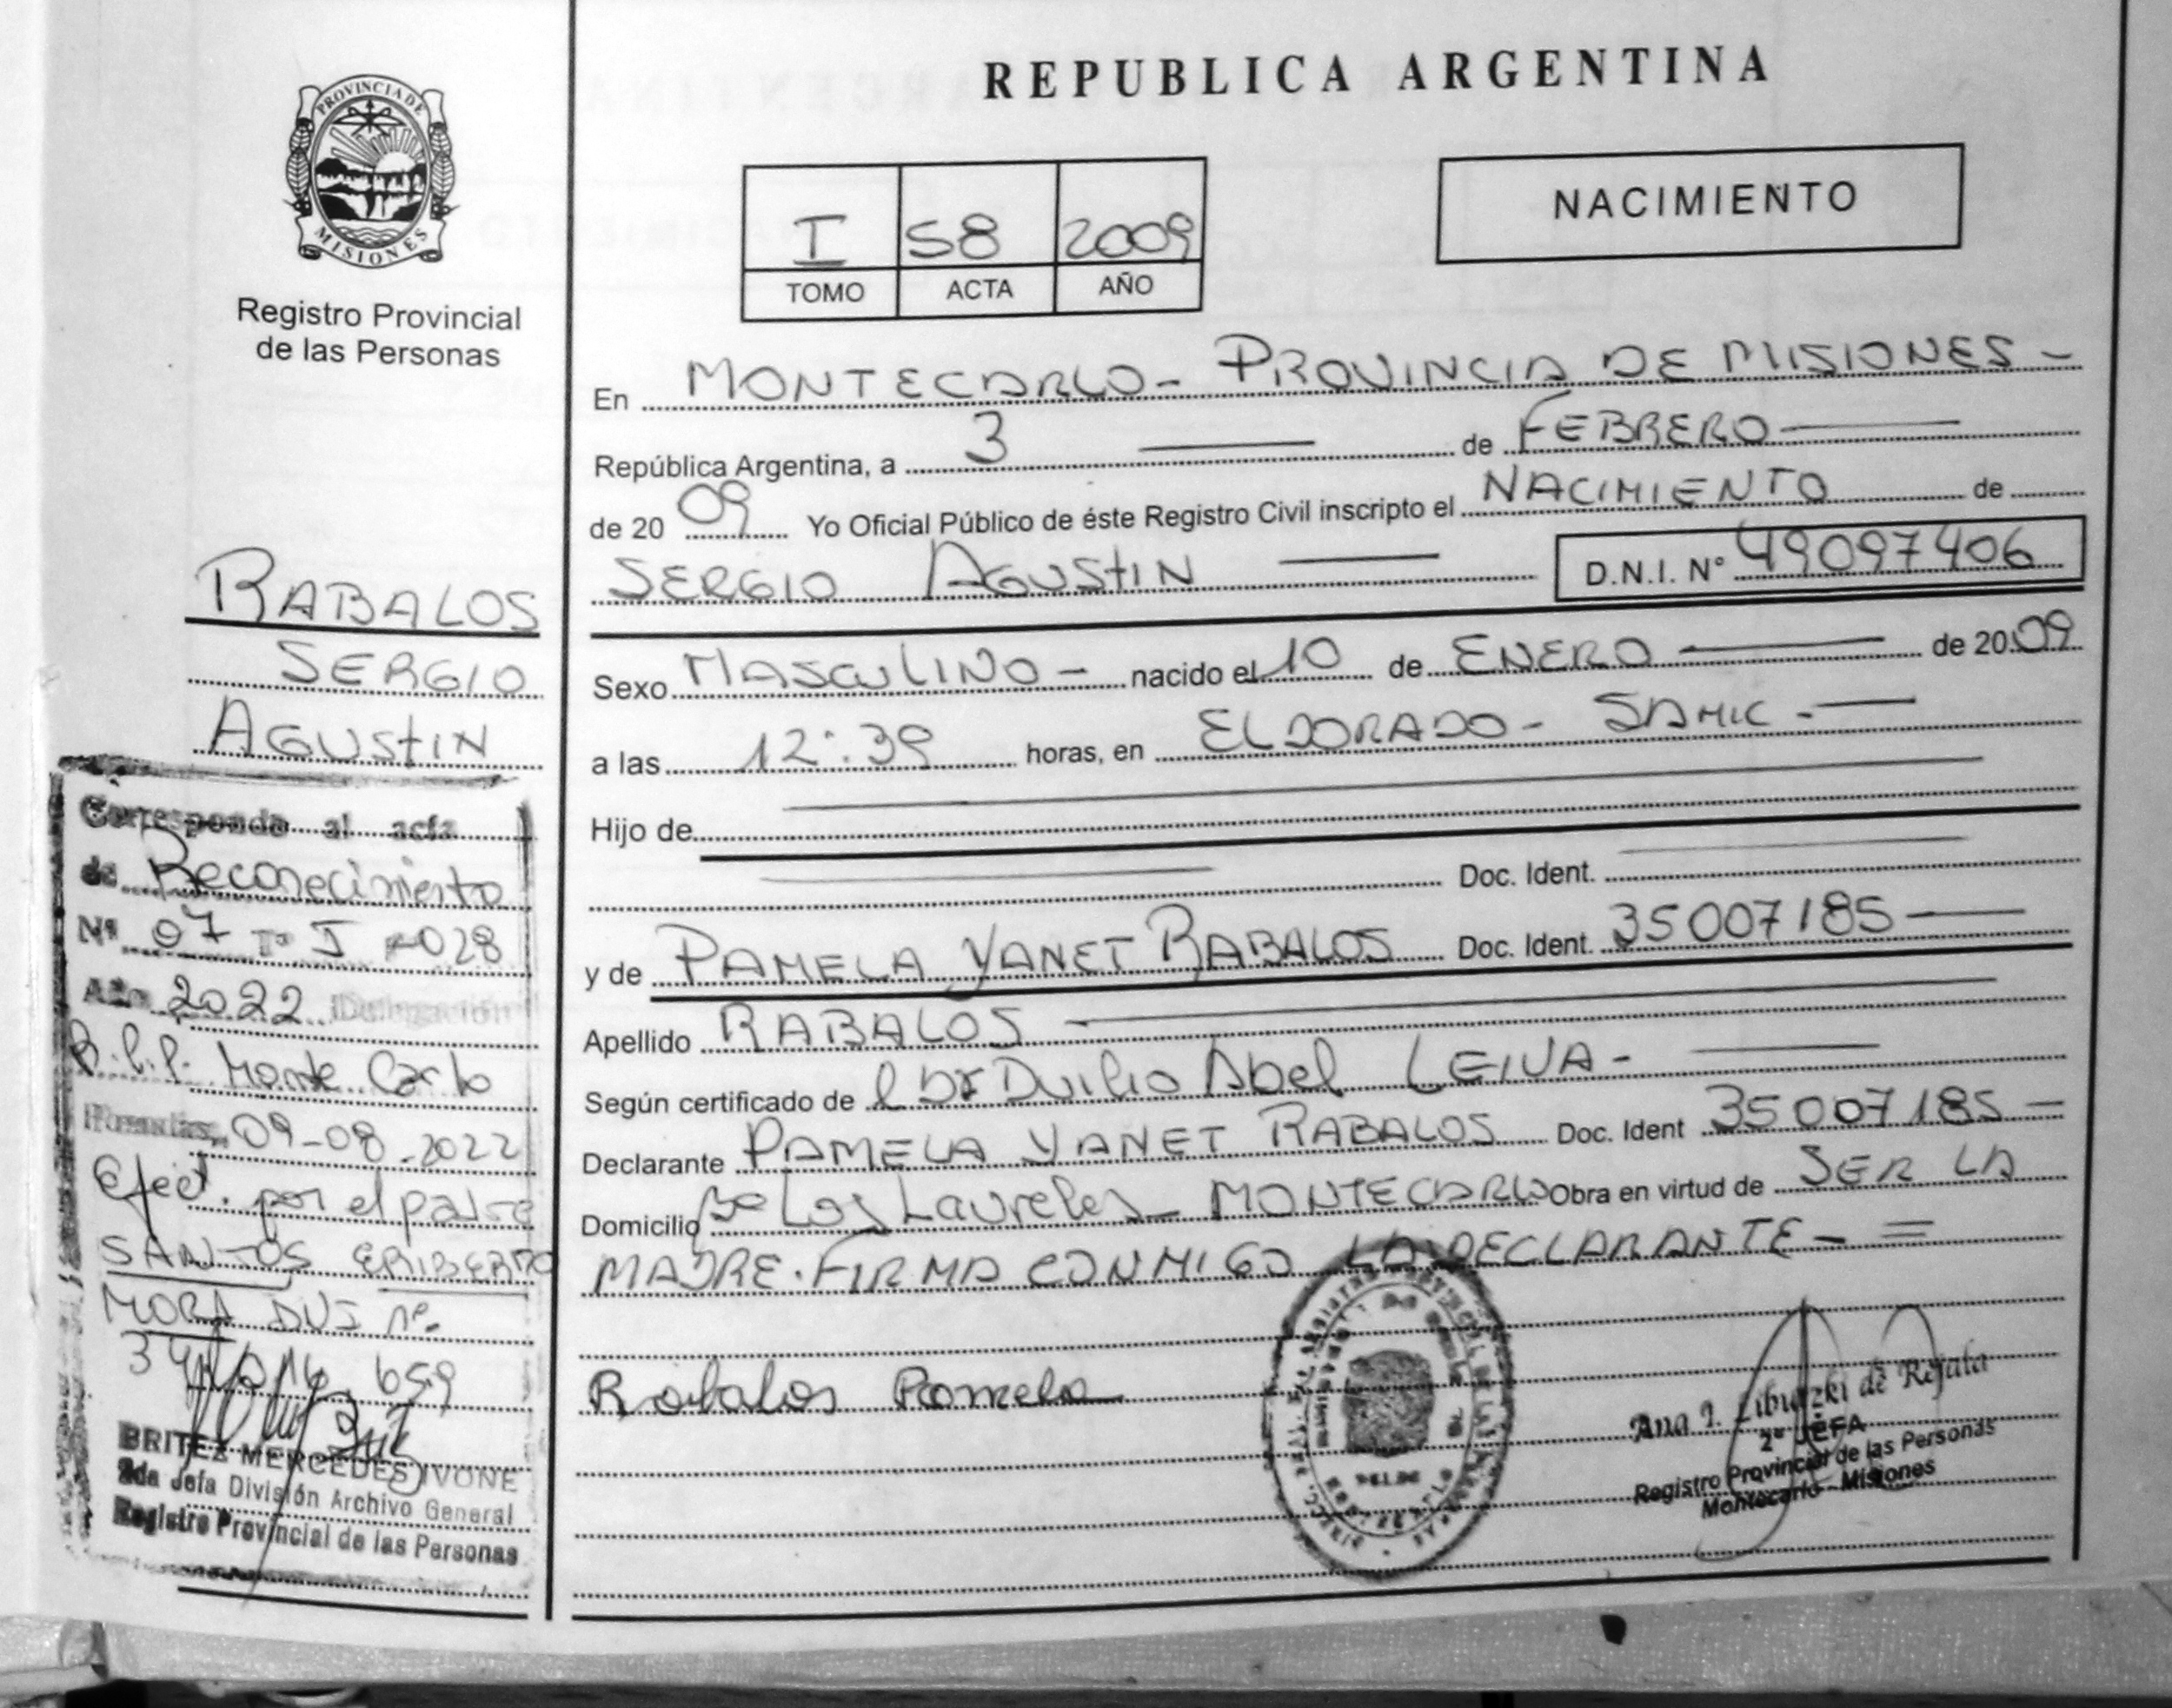 PROVINCIA DE
MISIONES
Registro Provincial
de las Personas
RABALOS
SERGIO
AGUSTIN
Corresponde al acta
de Reconocimiento
Nº 07 Tº I Fº 028
Año 2022 Delegación
Monte Carlo
Posadas, 09-08-2022
Efect. por el padre
SANTOS ERIBERTO
MORA DNI Nº
659
BRITEZ MERCEDES IVONE
2da Jefa División Archivo General
Registro Provincial de las Personas
REPUBLICA ARGENTINA
I 58 2009
TOMO ACTA AÑO
NACIMIENTO
En MONTECARLO - PROVINCIA DE MISIONES -
República Argentina, a 3 de FEBRERO
de 2009 Yo Oficial Público de éste Registro Civil inscripto el NACIMIENTO de
SERGIO AGUSTIN D.N.I. Nº 49097406
Sexo MASCULINO - nacido el 10 de ENERO de 2009
a las 12:39 horas, en ELDORADO - SAMIC -
Hijo de
Doc. Ident.
y de PAMELA YANET RABALOS Doc. Ident. 35007185
Apellido RABALOS
Según certificado de l Dr Duilio Abel LEIVA -
Declarante PAMELA YANET RABALOS Doc. Ident 35007185 -
Domicilio Bº Los Laureles - MONTECARLO Obra en virtud de SER LA
MADRE. FIRMA CONMIGO LA DECLARANTE - =
Rabalos Pamela
Ana
2º JEFA
Registro Provincial de las Personas
Montecarlo - Misiones